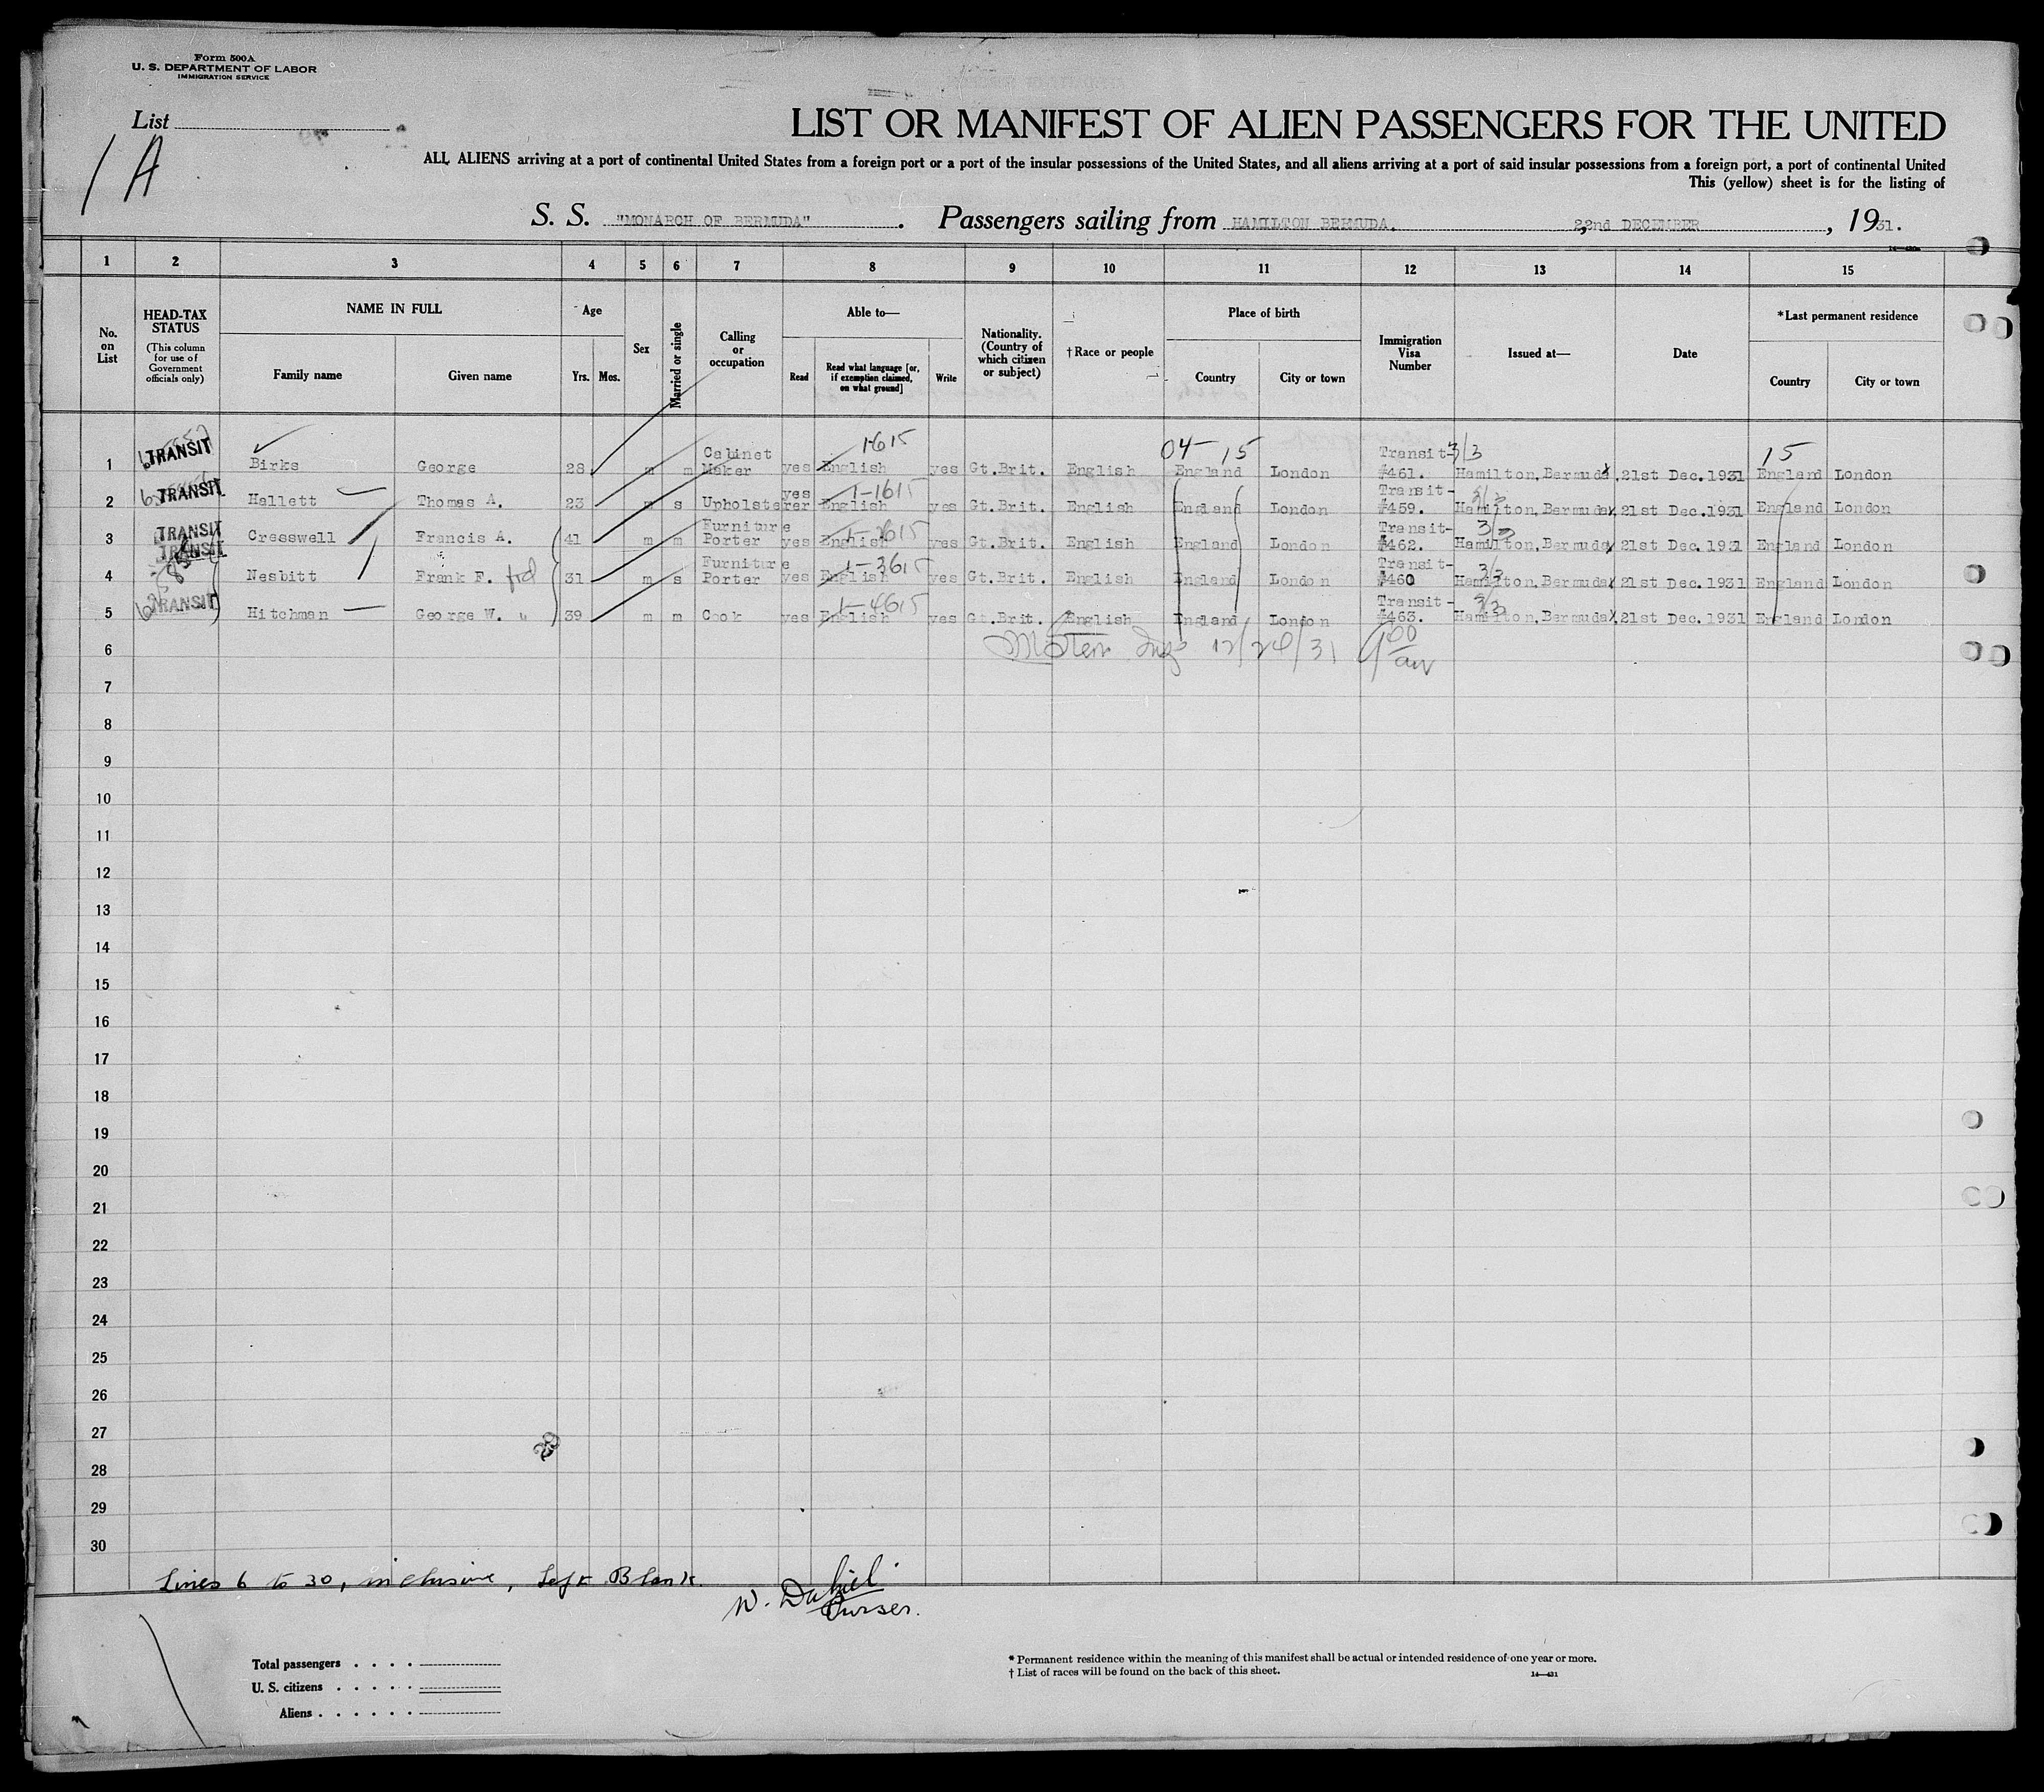 Form 500A
U. S. DEPARTMENT OF LABOR
IMMIGRATION SERVICE
List
1 A
LIST OR MANIFEST OF ALIEN PASSENGERS FOR THE UNITED
ALL ALIENS arriving at a port of continental United States from a foreign port or a port of the insular possessions of the United States, and all aliens arriving at a port of said insular possessions from a foreign port, a port of continental United
This (yellow) sheet is for the listing of
S. S. "MONARCH OF BERMUDA" . Passengers sailing from HAMILTON BERMUDA. 22nd DECEMBER , 1931.
1 2 3 4 5 6 7 8 9 10 11 12 13 14 15
No. on List
HEAD-TAX STATUS (This column for use of Government officials only)
NAME IN FULL
Family name
Given name
Age
Yrs.
Mos.
Sex
Married or single
Calling or occupation
Able to—
Read
Read what language [or, if exemption claimed, on what ground]
Write
Nationality. (Country of which citizen or subject)
†Race or people
Place of birth
Country
City or town
Immigration Visa Number
Issued at—
Date
*Last permanent residence
Country
City or town
1615 04-15 3/3 15
1 TRANSIT Birks George 28 m m Cabinet Maker yes English yes Gt.Brit. English England London Transit- #461. Hamilton,Bermuda, 21st Dec.1931 England London
1-1615 3/3
2 TRANSIT Hallett Thomas A. 23 m s Upholsterer yes English yes Gt.Brit. English England London Transit- #459. Hamilton,Bermuda, 21st Dec.1931 England London
1-2615 3/3
3 TRANSIT Cresswell Francis A. 41 m m Furniture Porter yes English yes Gt.Brit. English England London Transit- #462. Hamilton,Bermuda, 21st Dec.1931 England London
1-3615 3/3
4 TRANSIT Nesbitt Frank F. 31 m s Furniture Porter yes English yes Gt.Brit. English England London Transit- #460 Hamilton,Bermuda, 21st Dec.1931 England London
1-4615 3/3
5 TRANSIT Hitchman George W. 39 m m Cook yes English yes Gt.Brit. English England London Transit- #463. Hamilton,Bermuda, 21st Dec.1931 England London
6 12/24/31 9 00 am
7
8
9
10
11
12
13
14
15
16
17
18
19
20
21
22
23
24
25
26
27
28
29
30
Lines 6 to 30, inclusive, Left Blank.
Purser.
Total passengers
U. S. citizens
Aliens
* Permanent residence within the meaning of this manifest shall be actual or intended residence of one year or more.
† List of races will be found on the back of this sheet.
14—431